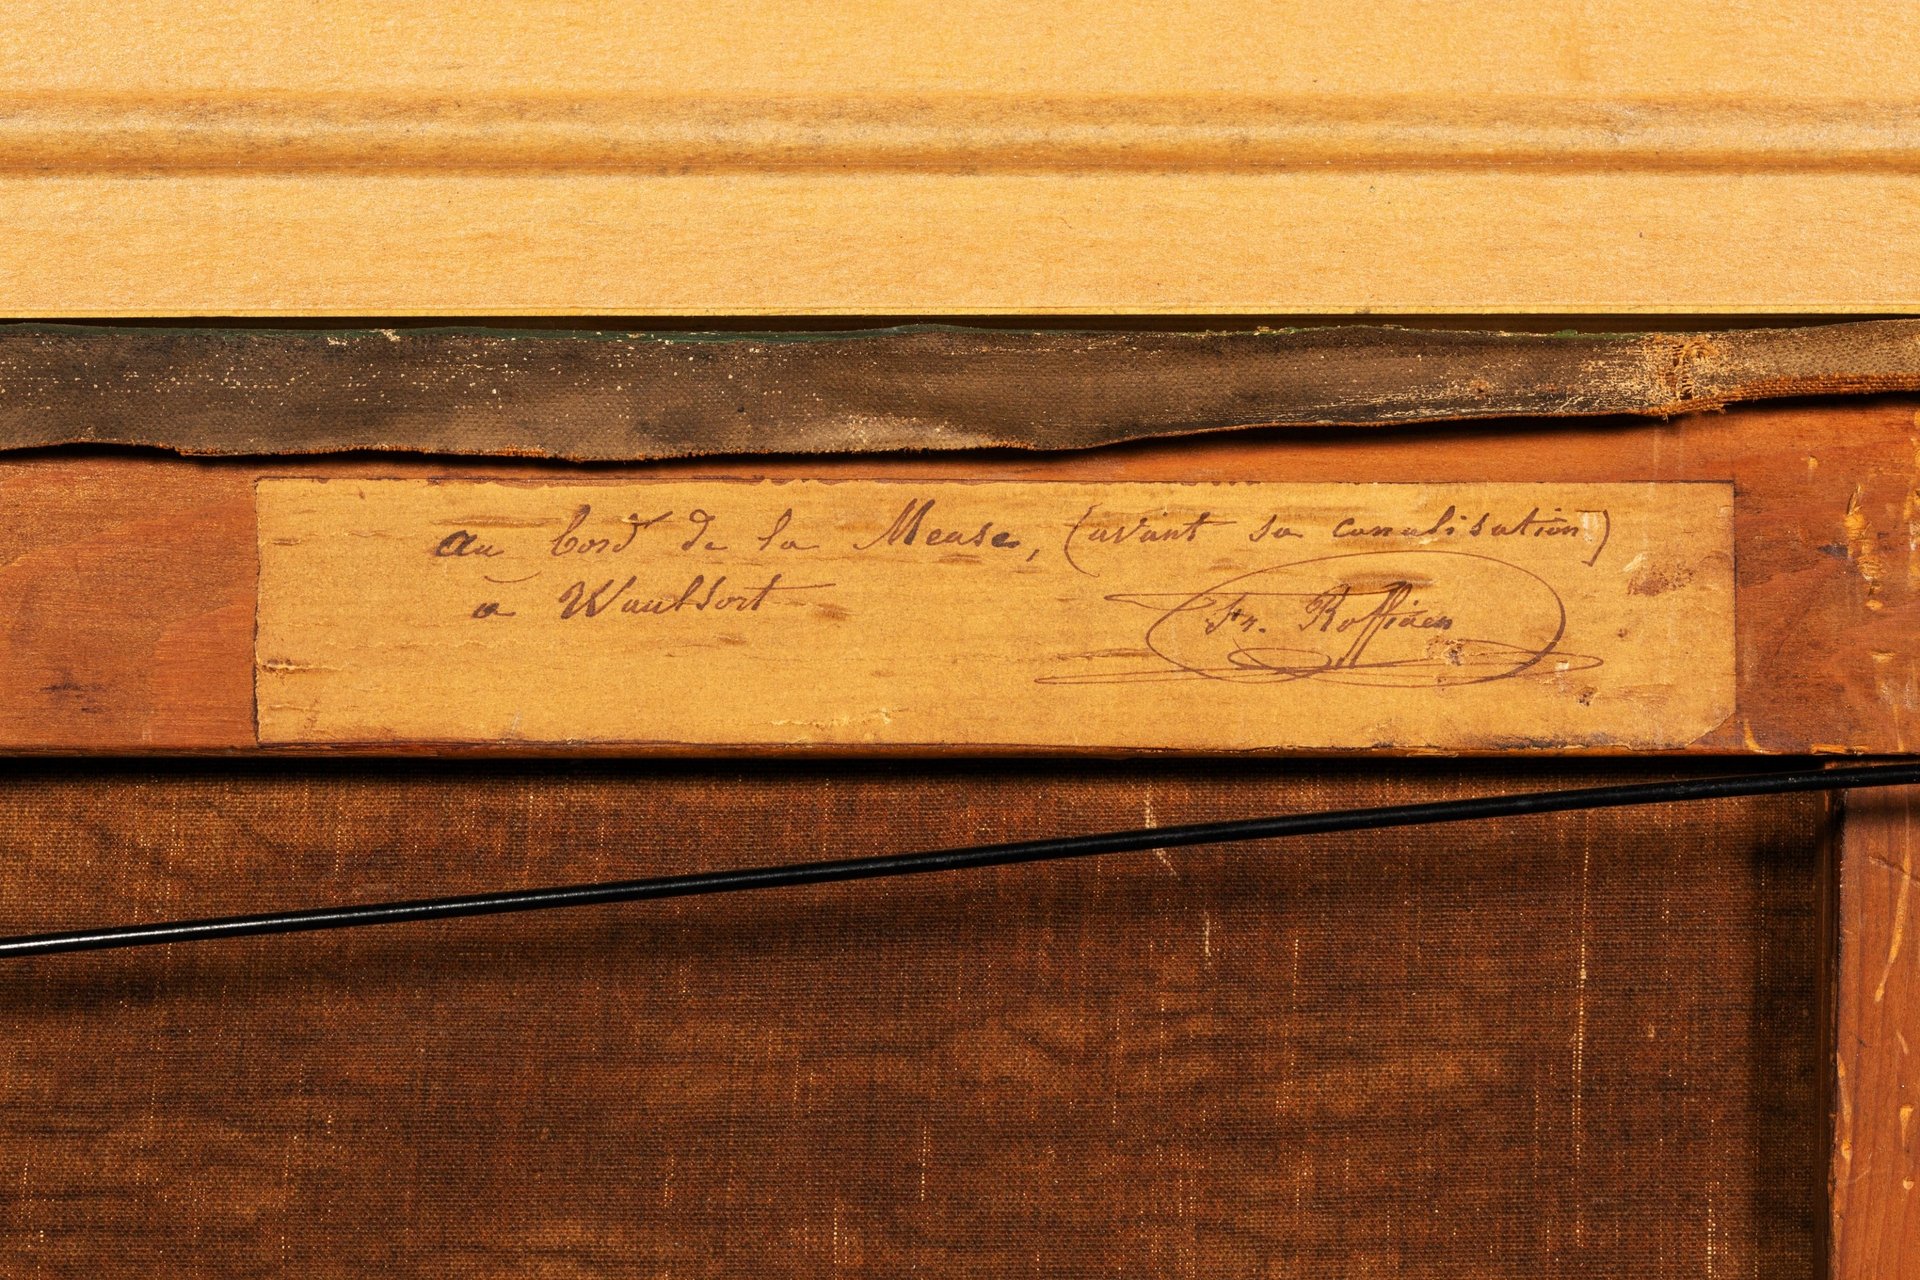 au bord de la Meuse, (avant sa canalisation)
a Waulsort
Fr. Roffiaen